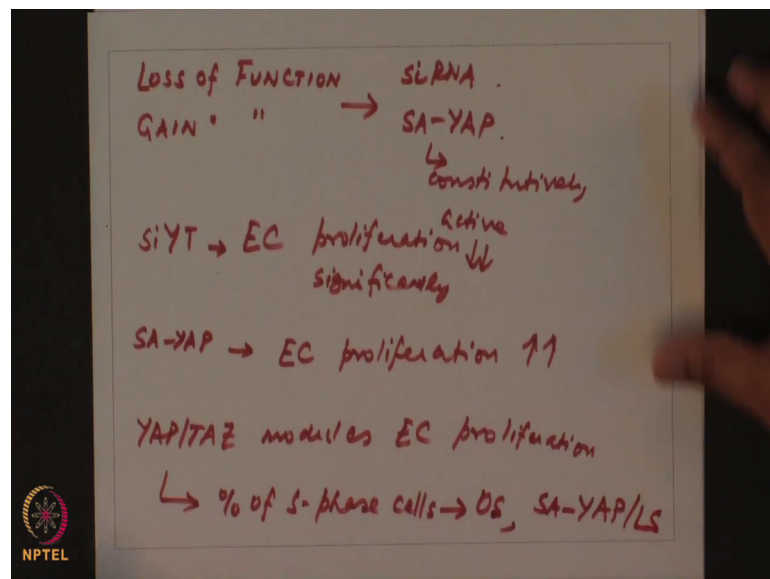 LOSS of FUNCTION → SiRNA.
GAIN " " SA-YAP.
↳ constitutively
active
SiYT → EC proliferation ↓↓
significantly
SA-YAP → EC proliferation ↑↑
YAP/TAZ modules EC proliferation
↳ % of S-phase cells → OS, SA-YAP/LS
NPTEL